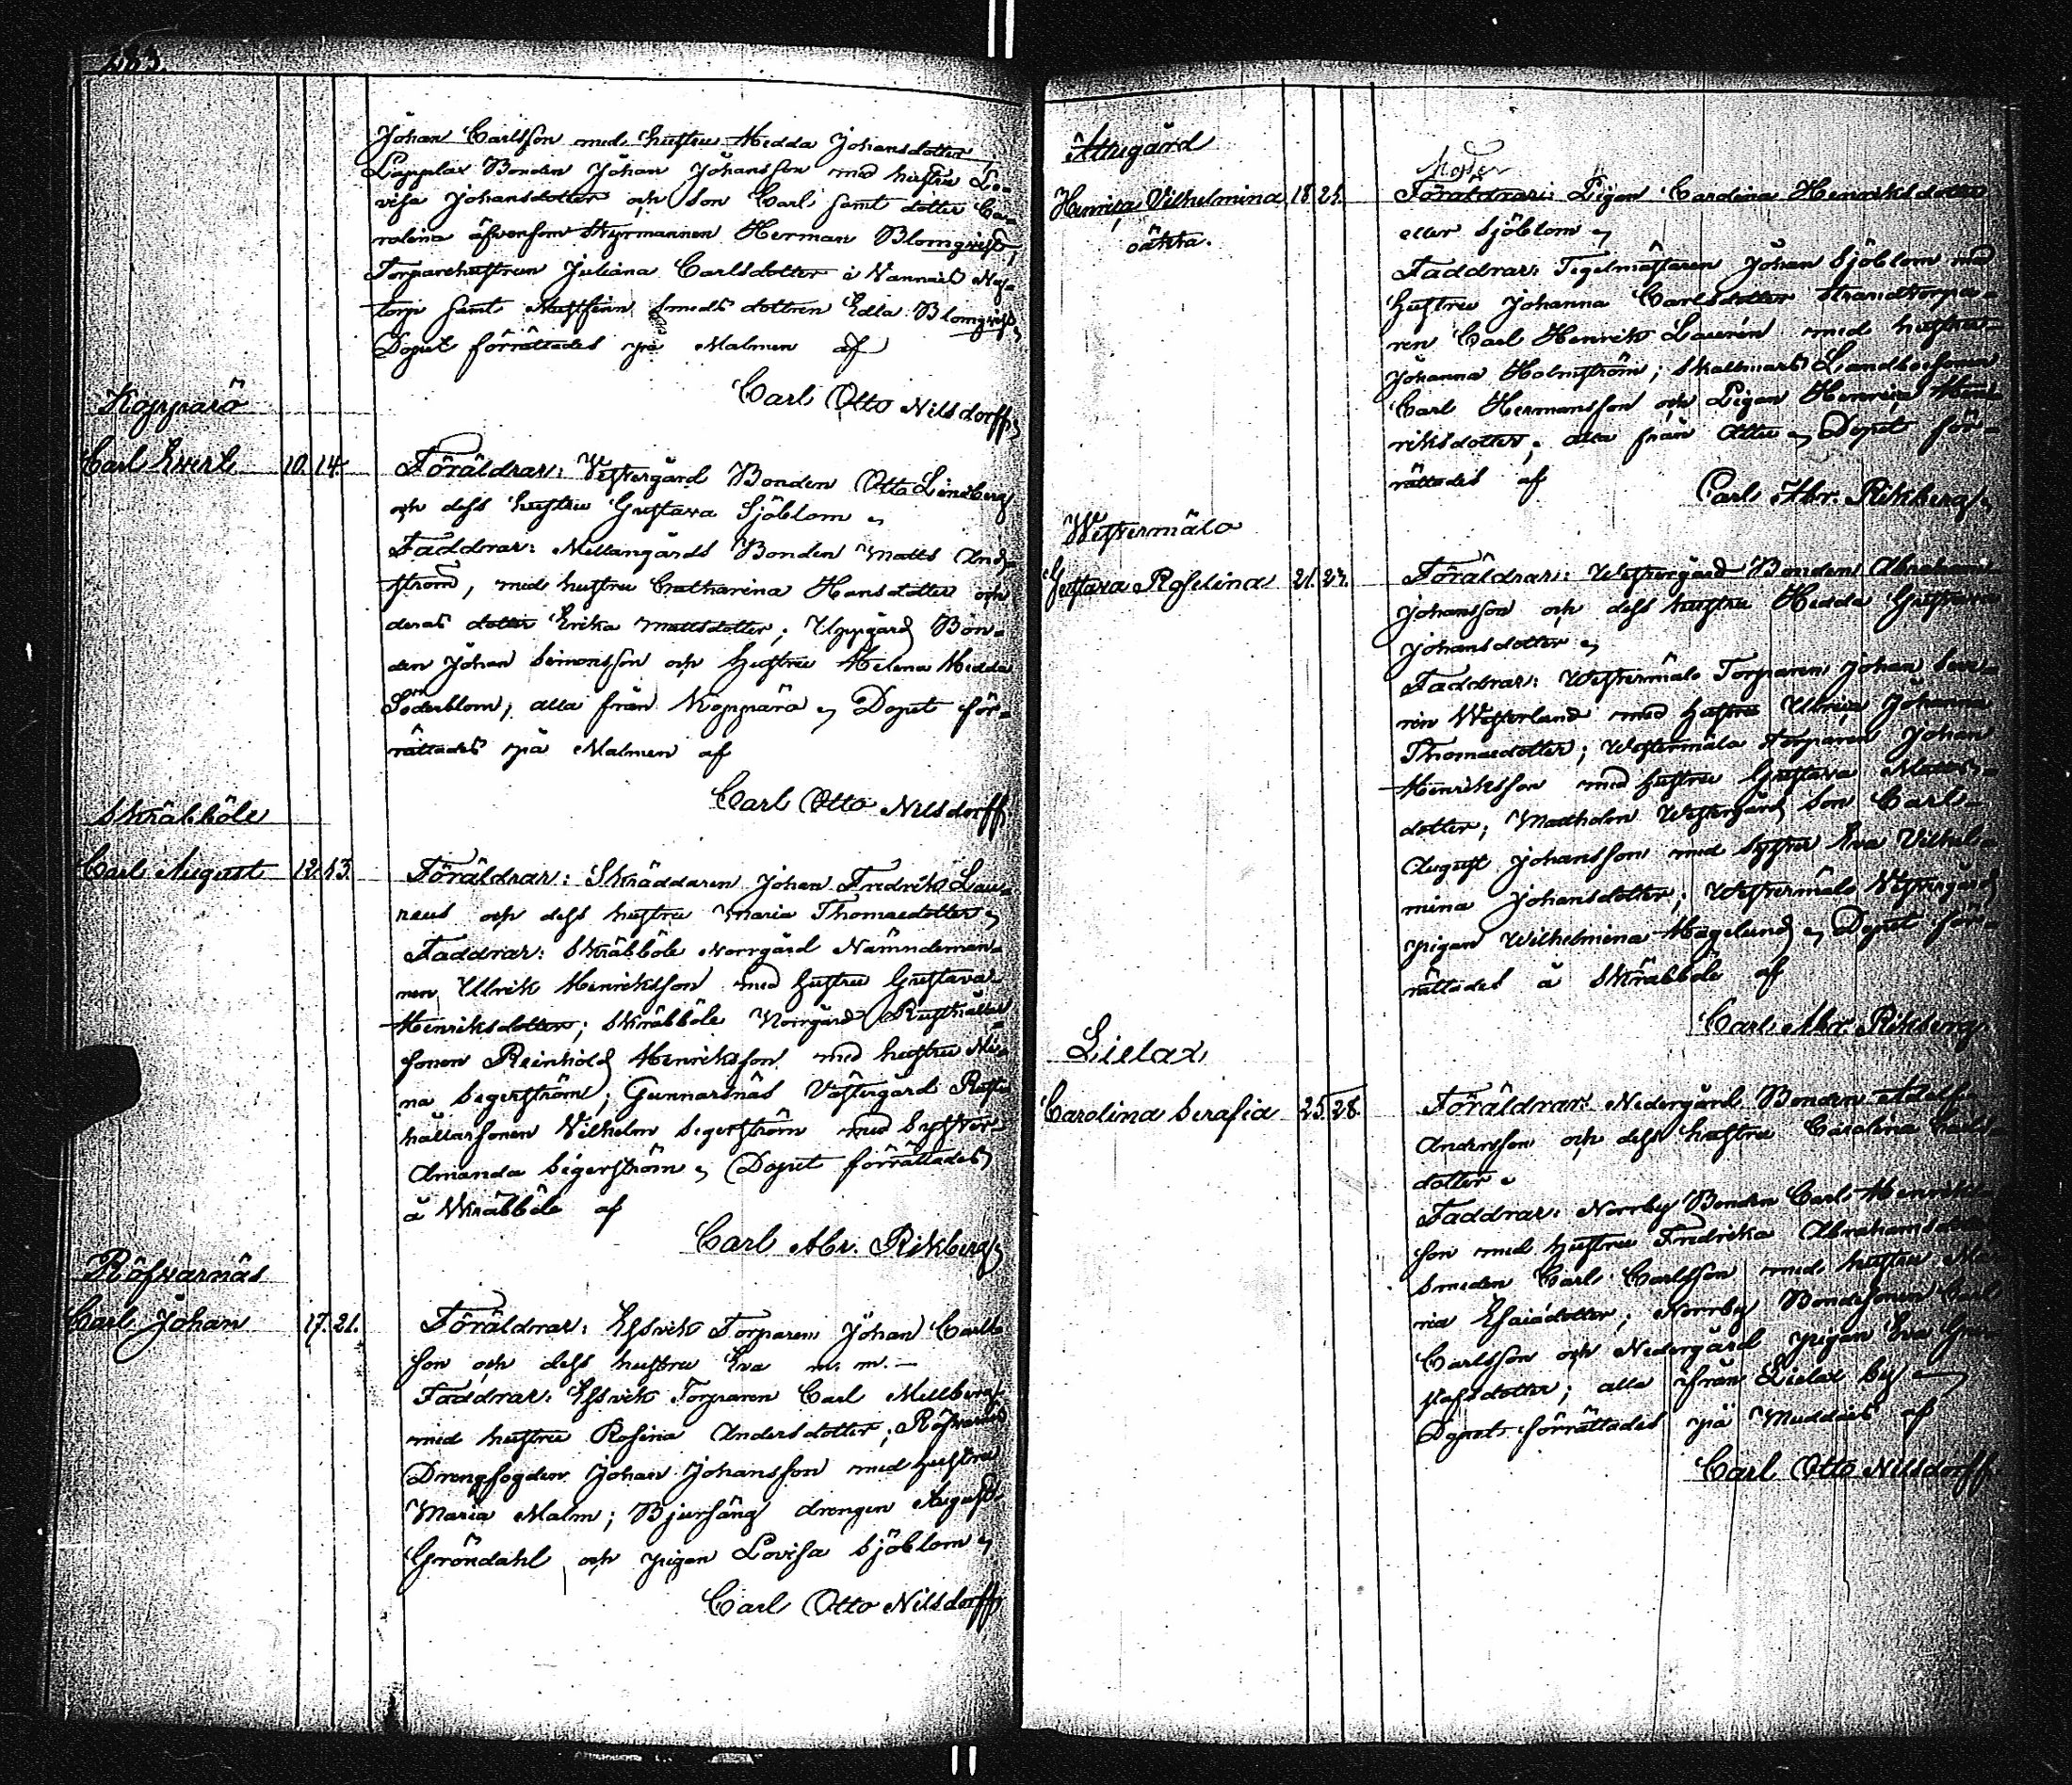 Johan Carlsson med hustru Hedda Johansdotter,
Lapplax Bonden Johan Johansson med hustru Lo-
visa Johansdotter och son Carl samt dotter Ca-
rolina äfvensom Styrmannen Herman Blomqvist,
Torparehustrun Juliana Carlsdotter i Vannais Ny-
torp samt smeds dottren Edla Blomqvist
Dopet förrättades på Malmen af
Carl Otto Nilsdorff
Kopparö
Carl Evert 10. 14. Föräldrar: Vestergård Bonden Otto Lindberg
och dess hustru Gustava Sjöblom
Faddrar: Mellangårds Bonden Matts And-
ström, med hustru Catharina Hansdotter och
deras dotter Erika Mattsdotter; Uppgård Bon-
den Johan Simonsson och hustru Helena Hedda
Söderblom; alla från Kopparö Dopet för-
rättades på Malmen af
Carl Otto Nilsdorff
Skräbböle
Carl August 12. 13. Föräldrar: Skräddaren Johan Fredrik Lau-
raeus och dess hustru Maria Thomaedotter
Faddrar: Skräbböle Norrgård Nämndeman-
nen Ulrik Henriksson med hustru Gustava
Henriksdotter; Skräbböle Norrgård Rusthållar
sonen Reinhold Henriksson med hustru Mi-
na Segerström; Gunnarsnäs Västergård Rust-
hållarsonen Vilhelm Segerström med Syster
Amanda Segerström Dopet förrättades
å Skräbböle af
Carl Abr. Rikberg
Röfvarnäs
Carl Johan 17. 21. Föräldrar: Efsvik Torparen Johan Carls-
son och dess hustru Eva m. m. —
Faddrar: Efsvik Torparen Carl Mellberg
med hustru Rosina Andersdotter; Röfvarnäs
Drengfogden Johan Johansson med hustru
Maria Malm; Bjursäng drengen August
Gröndahl och pigan Lovisa Sjöblom
Carl Otto Nilsdorff
Attugård
Moder
Henrica Vilhelmina 18. 21. Föräldrar: Pigan Carolina Henriksdotter
oäkta.
eller Sjöblom
Faddrar: Tegelmästaren Johan Sjöblom med
hustru Johanna Carlsdotter Strandtorpa-
ren Carl Henrik Laurén med hustru
Johanna Holmström; Landbosonen
Carl Hermansson och Pigan Henrica Hen-
riksdotter; alla från Attu Dopet för-
rättades af
Carl Abr. Rikberg
Westermälo
Gustava Roselina 21. 27. Föräldrar: Westergård Bonden Abraham
Johansson och dess hustru Hedda Gustava
Johansdotter
Faddrar: Westermälo Torparen Johan Seve-
rin Westerlund med hustru Ulrica Johanna
Thomaedotter; Westermälo Torparen Johan
Henriksson med hustru Gustava Matts-
dotter; Mattholm Westergård son Carl
August Johansson med Syster Eva Vilhel-
mina Johansdotter; Westermälo Westergård
pigan Wilhelmina Hägelund Dopet för-
rättades å Skräbböle af
Carl Abr. Rikberg
Lielax
Carolina Serafia 25. 28. Föräldrar: Nedergård Bonden Adolf
Andersson och dess hustru Carolina Carls-
dotter
Faddrar: Norrby Bonden Carl Henriks-
son med hustru Fredrika Abrahamsdotter
Smeden Carl Carlsson med hustru Ma-
ria Esaiedotter; Norrby Bondesonen Carl
Carlsson och Nedergård pigan Eva Gus-
tafsdotter; alla från Lielax by
Dopet förrättades på Muddais af
Carl Otto Nilsdorff